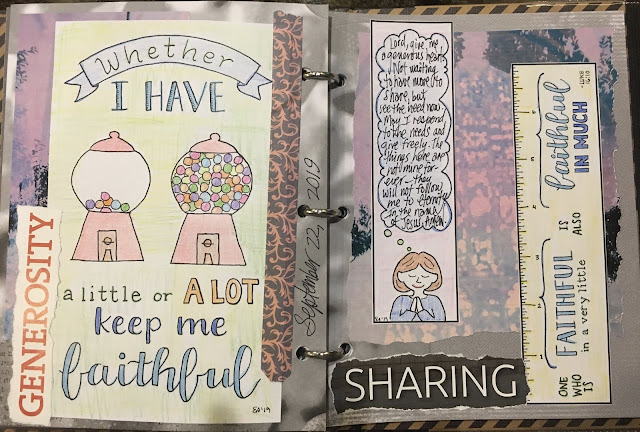 Whether
I HAVE
a little or A LOT
keep me
faithful
SD'19
GENEROSITY
September 22, 2019
Lord, give me
a generous heart
Not waiting
to have more to
share, but
see the need now.
May I respond
to the needs and
give freely. The
things here are
not mine for-
ever - they
will not follow
me to eternity
in the name
of Jesus, Amen
SD'19
SHARING
ONE
WHO
IS
FAITHFUL
in a very little
IS
ALSO
faithful
IN MUCH
-LUKE
16:10
1
2
3
4
5